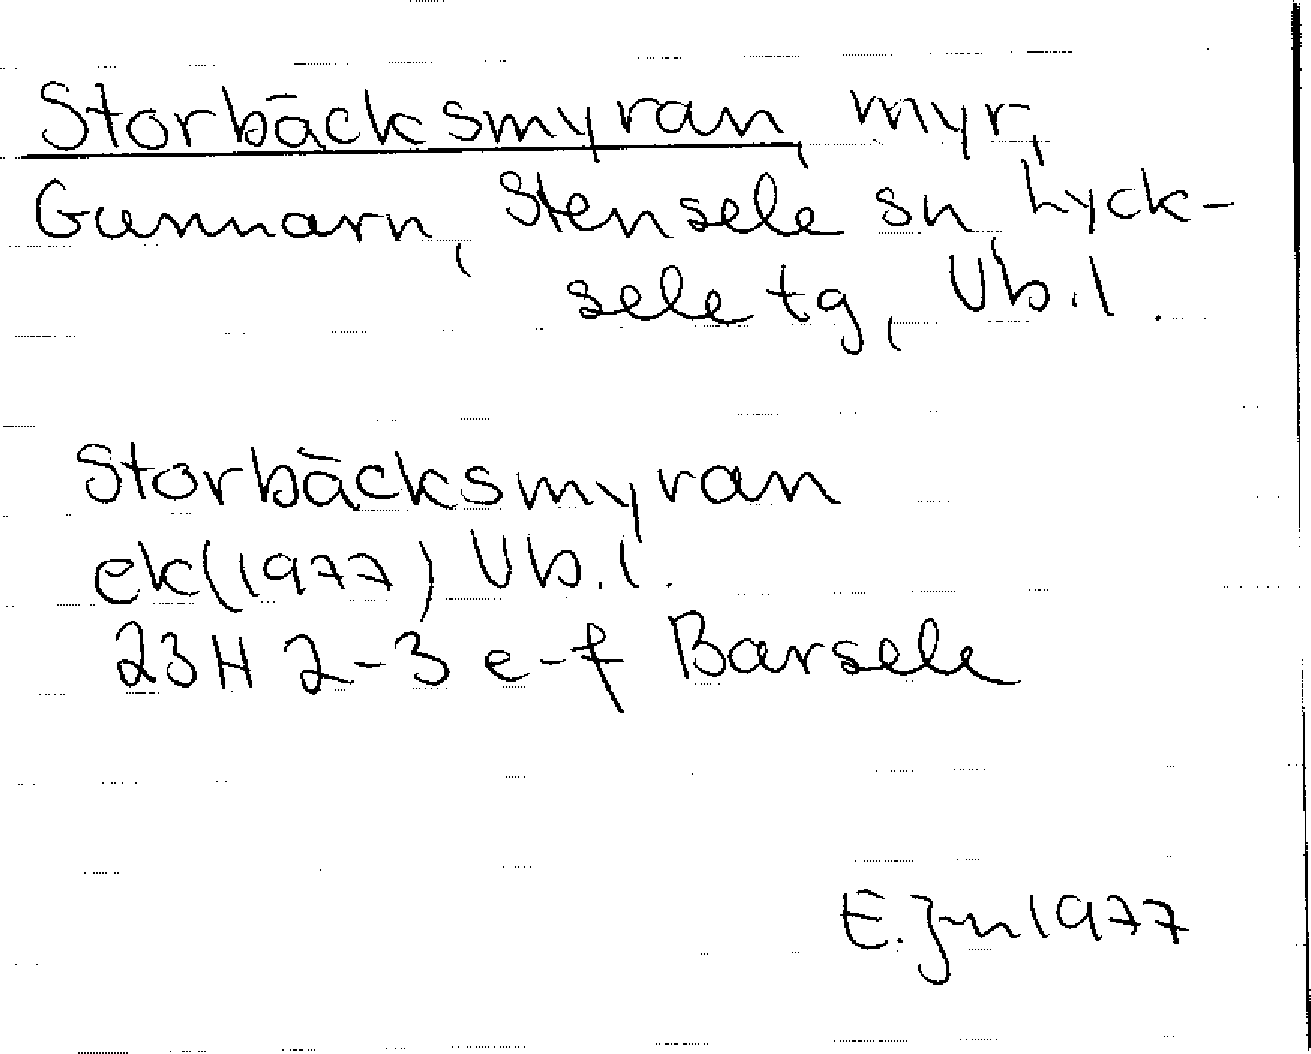 Storbäcksmyran, myr,
Gunnarn, Stensele sn, Lyck-
sele tg, Vb.l.
Storbäcksmyran
ek(1977) Vb.l.
23H 2-3 e-f Barsele
E.Jn 1977